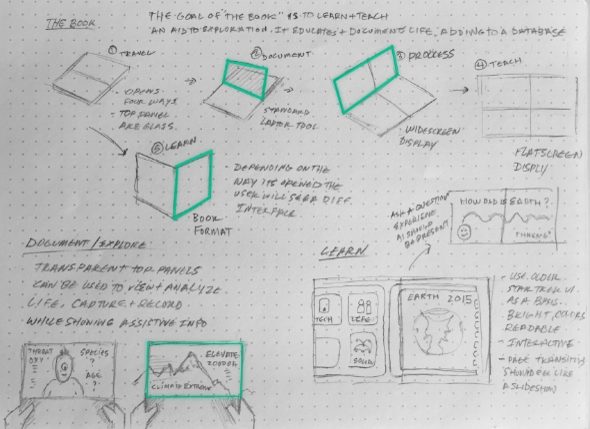 THE BOOK
THE GOAL OF "THE BOOK" IS TO LEARN + TEACH
AN AID TO EXPLORATION. IT EDUCATES + DOCUMENTS LIFE, ADDING TO A DATABASE
① TRAVEL
- OPENS
FOUR WAYS
- TOP PANEL
ARE GLASS.
② DOCUMENT
STANDARD
LAPTOP TOOL
③ PROCESS
- WIDESCREEN
DISPLAY
④ TEACH
FLATSCREEN
DISPLAY
⑤ LEARN
BOOK
FORMAT
- DEPENDING ON THE
WAY ITS OPENED THE
USER WILL SEE A DIFF.
INTERFACE
DOCUMENT / EXPLORE
TRANSPARENT TOP PANELS
CAN BE USED TO VIEW + ANALYZE
LIFE, CAPTURE + RECORD
WHILE SHOWING ASSISTIVE INFO
THREAT
SPECIES
?
AGE
?
ELEVATE
CLIMATE EXTREME
LEARN
ASK A QUESTION
EXPERIENCE
AI SHOULD
BE PRESENT
HOW OLD IS EARTH?
THINKING
TECH
LIFE
EARTH 2015
- USE OLDER
STAR TREK UI
AS A BASIS.
BRIGHT, COLORS
READABLE
- INTERACTIVE
- PAGE TRANSITIONS
SHOULD FEEL LIKE
A SLIDESHOW